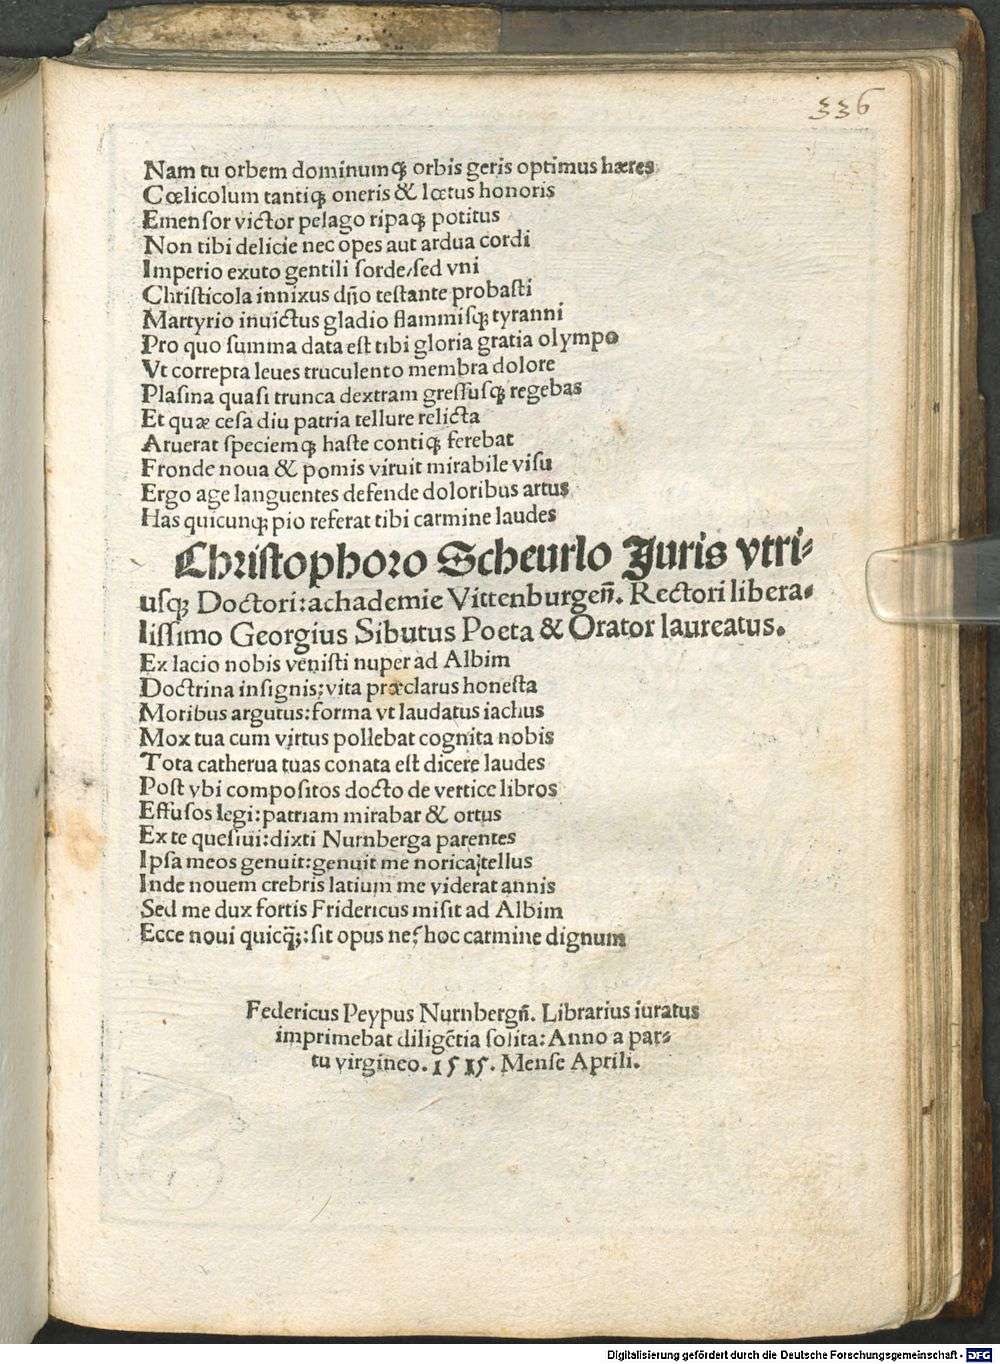 336
Nam tu orbem dominumqꝫ orbis geris optimus hæres
Cœlicolum tantiqꝫ oneris & lœtus honoris
Emensor victor pelago ripaqꝫ potitus
Non tibi delicie nec opes aut ardua cordi
Imperio exuto gentili sorde/sed vni
Christicola innixus dño testante probasti
Martyrio inuictus gladio flammisqꝫ tyranni
Pro quo summa data est tibi gloria gratia olympo
Vt correpta leues truculento membra dolore
Plasina quasi trunca dextram gressusqꝫ regebas
Et quæ cesa diu patria tellure relicta
Aruerat speciemqꝫ haste contiqꝫ ferebat
Fronde noua & pomis viruit mirabile visu
Ergo age languentes defende doloribus artus
Has quicunqꝫ pio referat tibi carmine laudes
Christophoro Scheurlo Juris vtri-
usqꝫ Doctori: achademie Vittenburgeñ. Rectori libera-
lissimo Georgius Sibutus Poeta & Orator laureatus.
Ex lacio nobis venisti nuper ad Albim
Doctrina insignis: vita præclarus honesta
Moribus argutus: forma vt laudatus iachus
Mox tua cum virtus pollebat cognita nobis
Tota catherua tuas conata est dicere laudes
Post vbi compositos docto de vertice libros
Effusos legi: patriam mirabar & ortus
Ex te quesiui: dixti Nurnberga parentes
Ipsa meos genuit: genuit me norica tellus
Inde nouem crebris latium me viderat annis
Sed me dux fortis Fridericus misit ad Albim
Ecce noui quicq̃ꝫ: sit opus ne hoc carmine dignum
Federicus Peypus Nurnbergñ. Librarius iuratus
imprimebat diligẽtia solita: Anno a par-
tu virgineo. 1515. Mense Aprili.
Digitalisierung gefördert durch die Deutsche Forschungsgemeinschaft - DFG